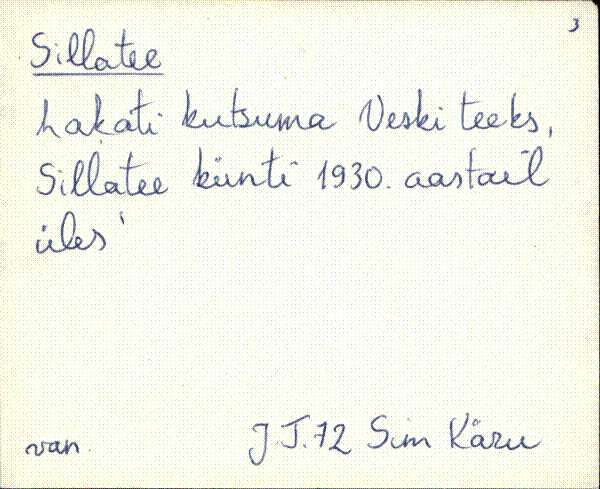 3
Sillatee
hakati kutsuma Veski teeks,
Sillatee künti 1930. aastail
üles'
van.
J.T.72 Sim Käru